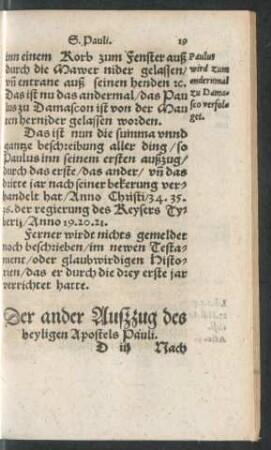 S. Pauli. 19
inn einem Korb zum Fenster auß
durch die Mawer nider gelassen/
vñ entrane auß seinen henden ꝛc.
Das ist nu das andermal/ das Pau
lus zu Damascon ist von der Mau
ren hernider gelassen worden.
Paulus
wird zum
andermal
zu Dama-
sco verfol-
get.
Das ist nun die summa vnnd
gantze beschreibung aller ding/ so
Paulus inn seinem ersten außzug/
durch das erste/ das ander/ vñ das
dritte jar nach seiner bekerung ver-
handelt hat/ Anno Christi/ 34. 35.
36. der regierung des Keysers Ty-
berij/ Anno 19. 20. 21.
Ferner wirdt nichts gemeldet
noch beschrieben/ im newen Testa-
ment/ oder glaubwirdigen Histo-
rien/ das er durch die drey erste jar
verrichtet hatte.
Der ander Außzug des
heyligen Apostels Pauli.
D iij Nach